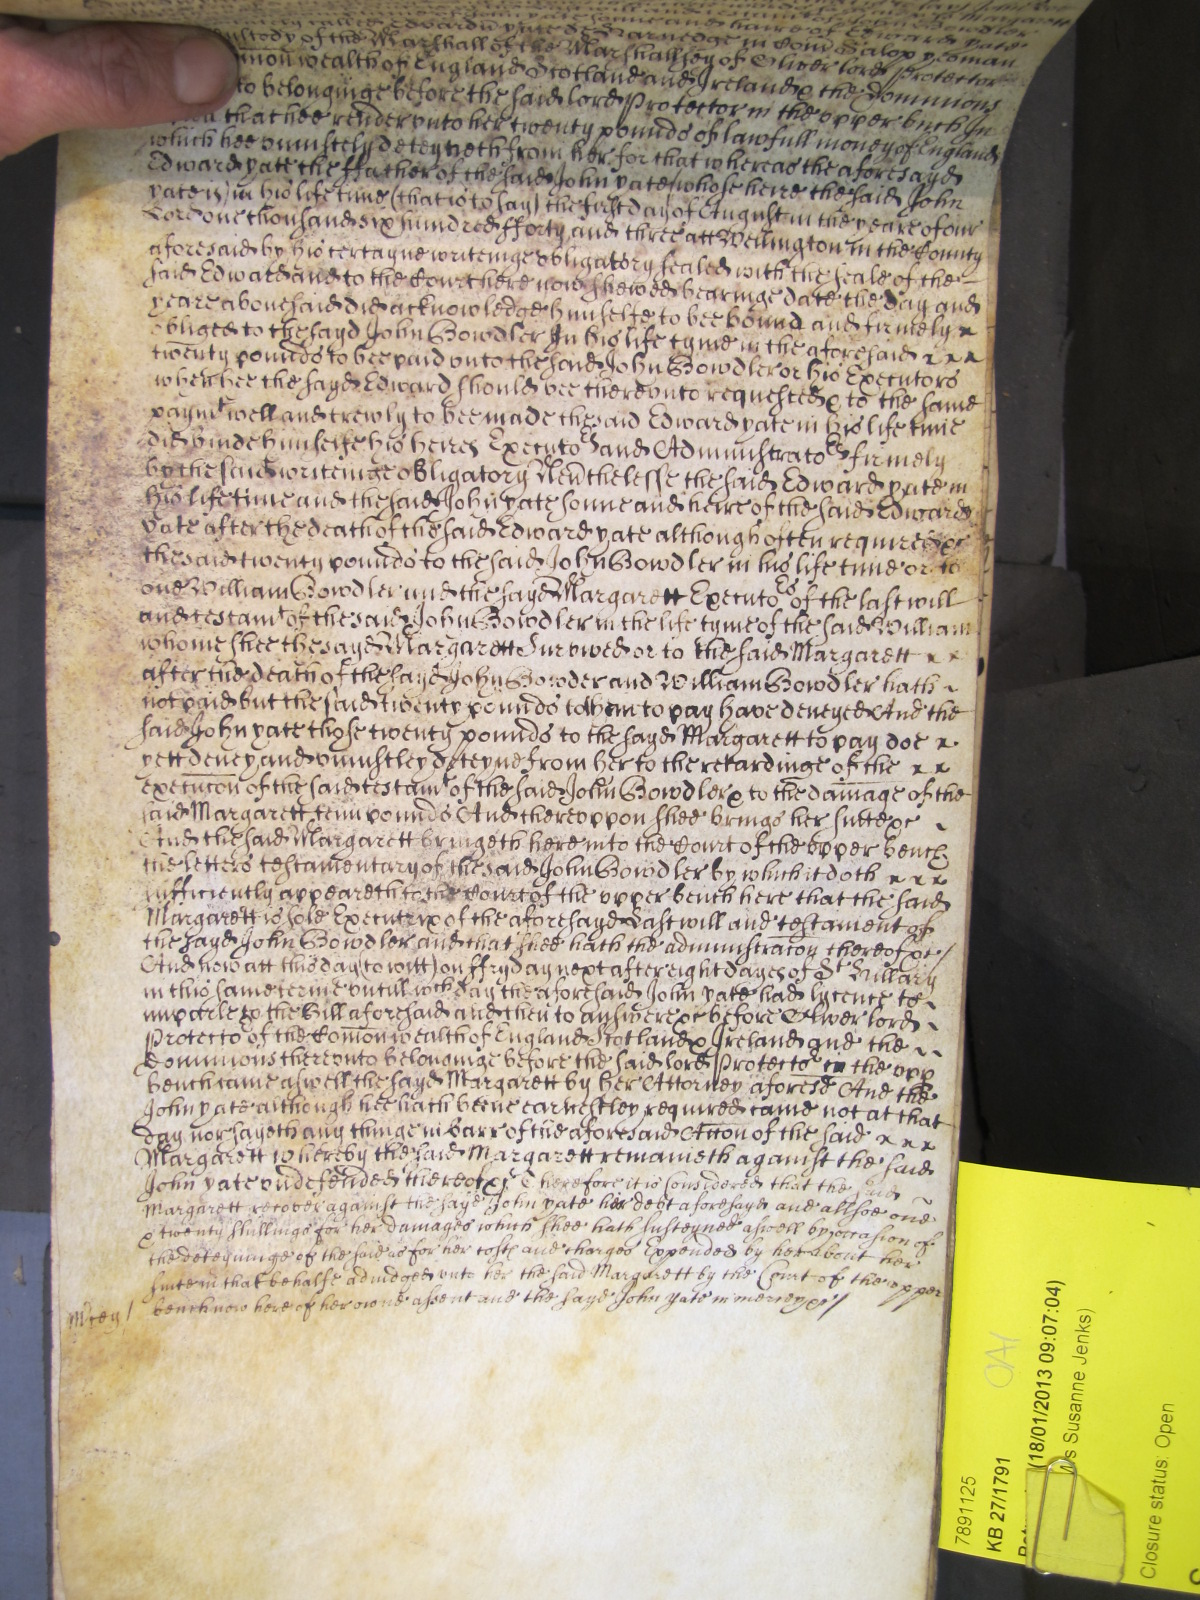 sonne and heire of Edward yate
called Edward yate de Harnedge in Com Salop yeoman
Custody of the Marshall of the Marshallsey of Oliver lord Protector
monwealth of England Scotland and Ireland & the Dominions
to belonginge before the said lord Protector in the upper bench In
that hee render unto her twenty pounds of lawfull money of England
which hee uniustely deteyneth from her for that whereas the aforesayd
Edward yate the ffather of the said John yate (whose heire the said John
yate is) in his life time (that is to say) the first day of August in the yeare of our
Lord one thousand six hundred fforty and three att Wellington in the County
aforesaid by his certayne writeinge obligatory sealed with the seale of the
said Edward and to the Court here now shewed bearinge date the day and
yeare abovesaid did acknowledge himselfe to bee bound and firmely
obliged to the sayd John Bowdler In his life tyme in the aforesaid
twenty pounds to bee paid unto the said John Bowdler or his Executors
when hee the sayd Edward should bee thereunto requested & to the same
paymt well and trewly to bee made the said Edward yate in his life time
did binde himselfe his heires Executors and Administrators firmely
by the said writeinge obligatory Nevthelesse the said Edward yate in
his life time and the said John yate sonne and heire of the said Edward
yate after the death of the said Edward yate although often required &c
the said twenty pounds to the said John Bowdler in his life time or to
one William Bowdler and the sayd Margarett Executors of the last will
and testamt of the said John Bowdler in the life tyme of the said William
whome shee the sayd Margarett Survived or to the said Margarett
after the death of the sayd John Bowder and William Bowdler hath
not paid but the said twenty pounds to them to pay have denyed And the
said John yate those twenty pounds to the sayd Margarett to pay doe
yett deney and uniustley deteyne from her to the retardinge of the
execution of the said testamt of the said John Bowdler & to the damage of the
said Margarett tenn pounds And thereuppon shee brings her suite &c
And the said Margarett bringeth here into the Court of the upper bench
the letters testamentary of the said John Bowdler by which it doth
sufficiently appeareth to the Court of the upper bench here that the said
Margarett is sole Executrix of the aforesayd Last will and testament of
the sayd John Bowdler and that shee hath the administracon thereof &c/
And now att this day (to witt) on ffryday next after eight dayes of St Hillary
in this same terme untill wch day the aforesaid John yate had lycence to
imparle to the Bill aforesaid and then to answere &c before Oliver lord
Protector of the Comonwealth of England Scotland & Ireland and the
Dominions thereunto belonginge before the said lord Protector in the upp
bench came aswell the sayd Margarett by her Attorney aforesd And the
John yate although hee hath beene earnestley required came not at that
day nor sayeth any thinge in barr of the aforesaid Accon of the said
Margarett whereby the said Margarett remaineth against the said
John yate undefended thereof &c Therefore it is considered that the said
Margarett recover against the sayd John yate her debt aforesayd and allsoe one
& twenty shillings for her damages which shee hath susteyned aswell by occasion of
the deteyninge of the said as for her costs and charges Expended by her about her
suite in that behalfe adiudged unto her the said Margarett by the Court of the upper
bench now here of her owne assent and the sayd John yate in mercy &c/
Mercy/
7891125
KB 27/1791
(18/01/2013 09:07:04)
Susanne Jenks)
Closure status: Open